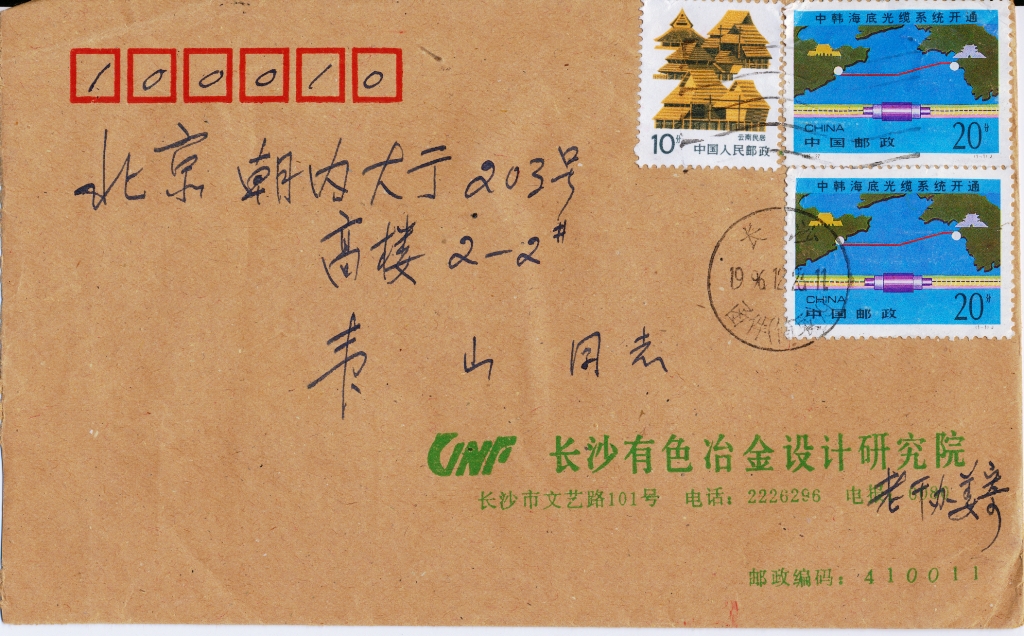 100010
云南民居
10分
中国人民邮政
中韩海底光缆系统开通
CHINA
中国邮政
20分
中韩海底光缆系统开通
CHINA
中国邮政
20分
北京朝内大于203号
高楼2-2#
韦山同志
长沙
1996.12.2 11
长沙有色冶金设计研究院
长沙市文艺路101号 电话：2226296 电
老干办姜寄
邮政编码：410011